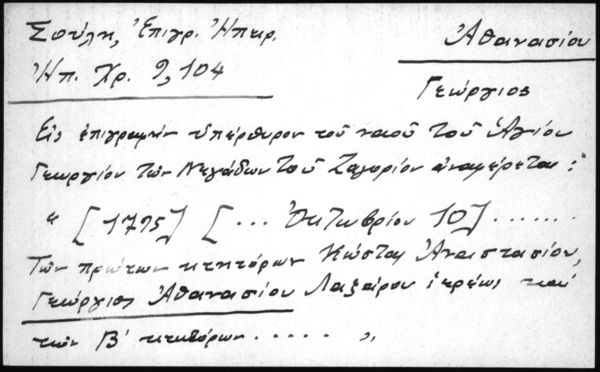 Σούλη, Ἐπιγρ. Ἠπειρ.
Ἠπ. Χρ. 9, 104
Ἀθανασίου
Γεώργιος
Εἰς ἐπιγραφὴν ὑπέρθυρον τοῦ ναοῦ τοῦ Ἁγίου
Γεωργίου τῶν Νεγάδων τοῦ Ζαγορίου ἀναφέρεται:
" [1795] [... Ὀκτωβρίου 10] ......
Τῶν πρώτων κτητόρων Κώσται Ἀναστασίου,
Γεώργιος Ἀθανασίου Λαζάρου ἱερέως καὶ
τῶν Β' κτητόρων ..... "